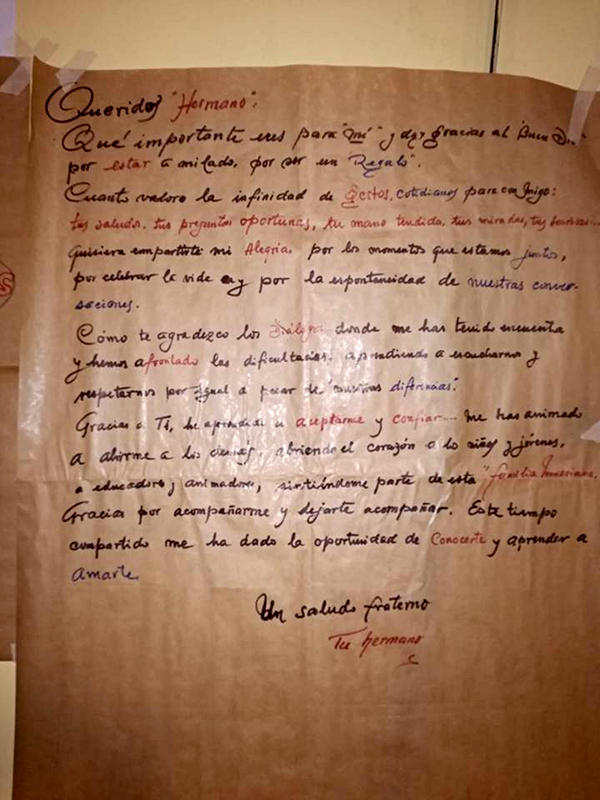 Querido, "Hermano":
Qué importante eres para "mí" y doy gracias al Buen
por estar a mi lado, por ser un "Regalo".
Cuanto valoro la infinidad de gestos, cotidianos para conmigo:
tus saludos, tus preguntas oportunas, tu mano tendida, tus miradas, tus
Quisiera compartirte mi Alegría, por los momentos que estamos juntos,
por celebrar la vida y por la espontaneidad de nuestras conver-
saciones.
Cómo te agradezco los Diálogos donde me has tenido en cuenta
y hemos afrontado las dificultades, aprendiendo a escucharnos y
respetarnos por igual a pesar de "nuestras diferencias".
Gracias a Ti, he aprendido a aceptarme y confiar... me has animado
a abrirme a los demás, abriendo el corazón a los niños y jóvenes,
a educadores y animadores, sintiéndome parte de esta "familia
Gracias por acompañarme y dejarte acompañar. Este tiempo
compartido me ha dado la oportunidad de Conocerte y aprender a
amarte.
Un saludo fraterno
Tu hermano